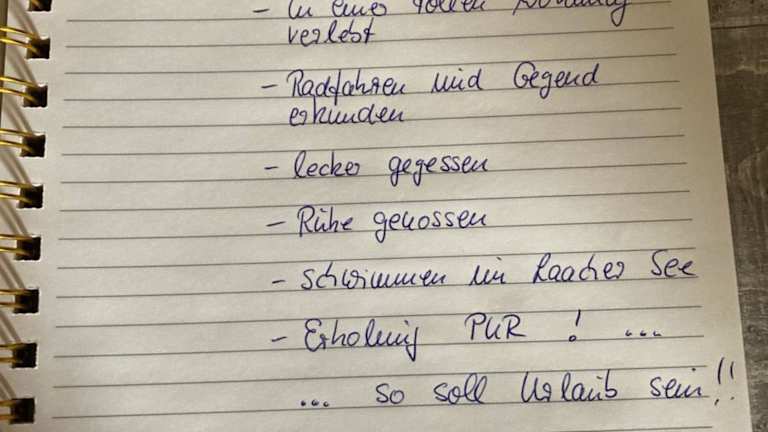 - In einer tollen Wohnung
verlebt
- Radfahren und Gegend
erkunden
- lecker gegessen
- Ruhe genossen
- Schwimmen im Laacher See
- Erholung PUR ! ...
... so soll Urlaub sein!!